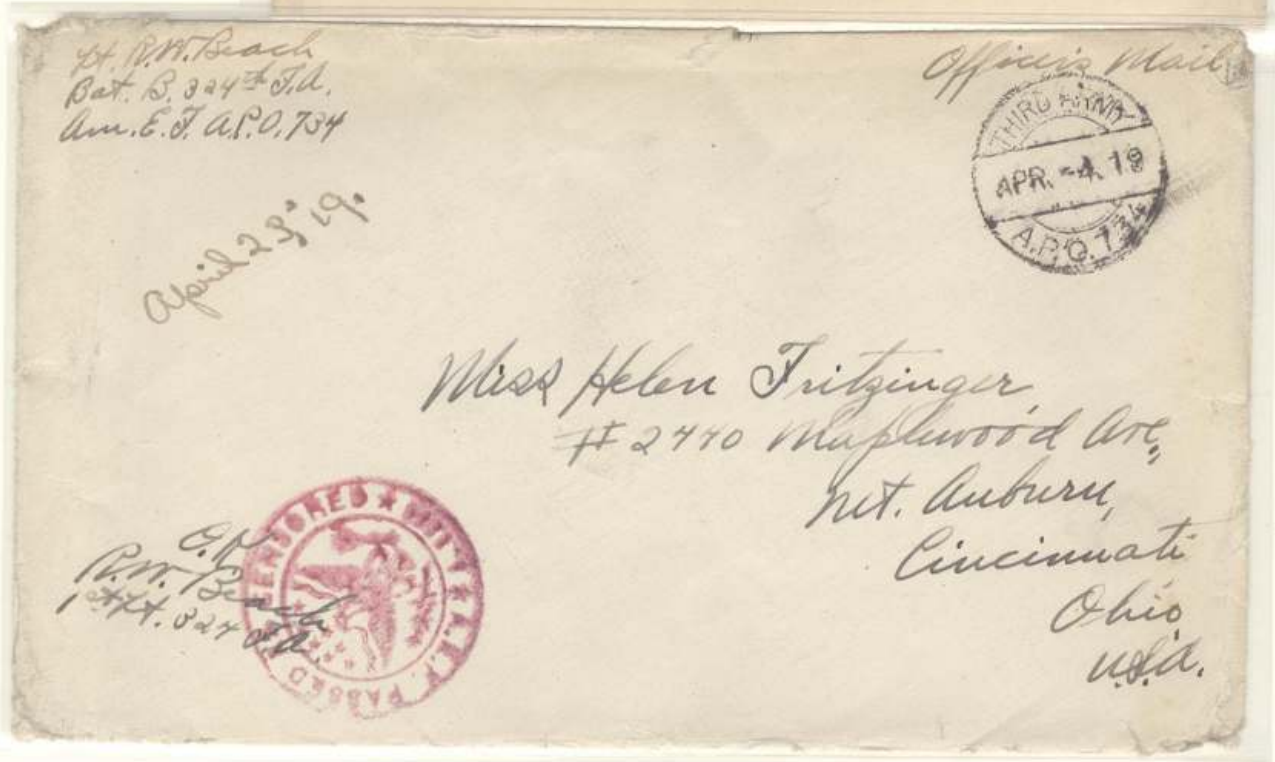 Lt. R.W. Beach
Bat. B. 324th F.A.
Am. E. F. A.P.O. 734
Officer's Mail
THIRD ARMY
APR. -4. 19
A.P.O. 734
April 23, '19.
Miss Helen Fritzinger
# 2440 Maplewood Ave.,
Mt. Auburn,
Cincinnati
Ohio
U.S.A.
O.K.
R.W. Beach
1st Lt. 324 F.A.
PASSED CENSORED ★ A.E.F.